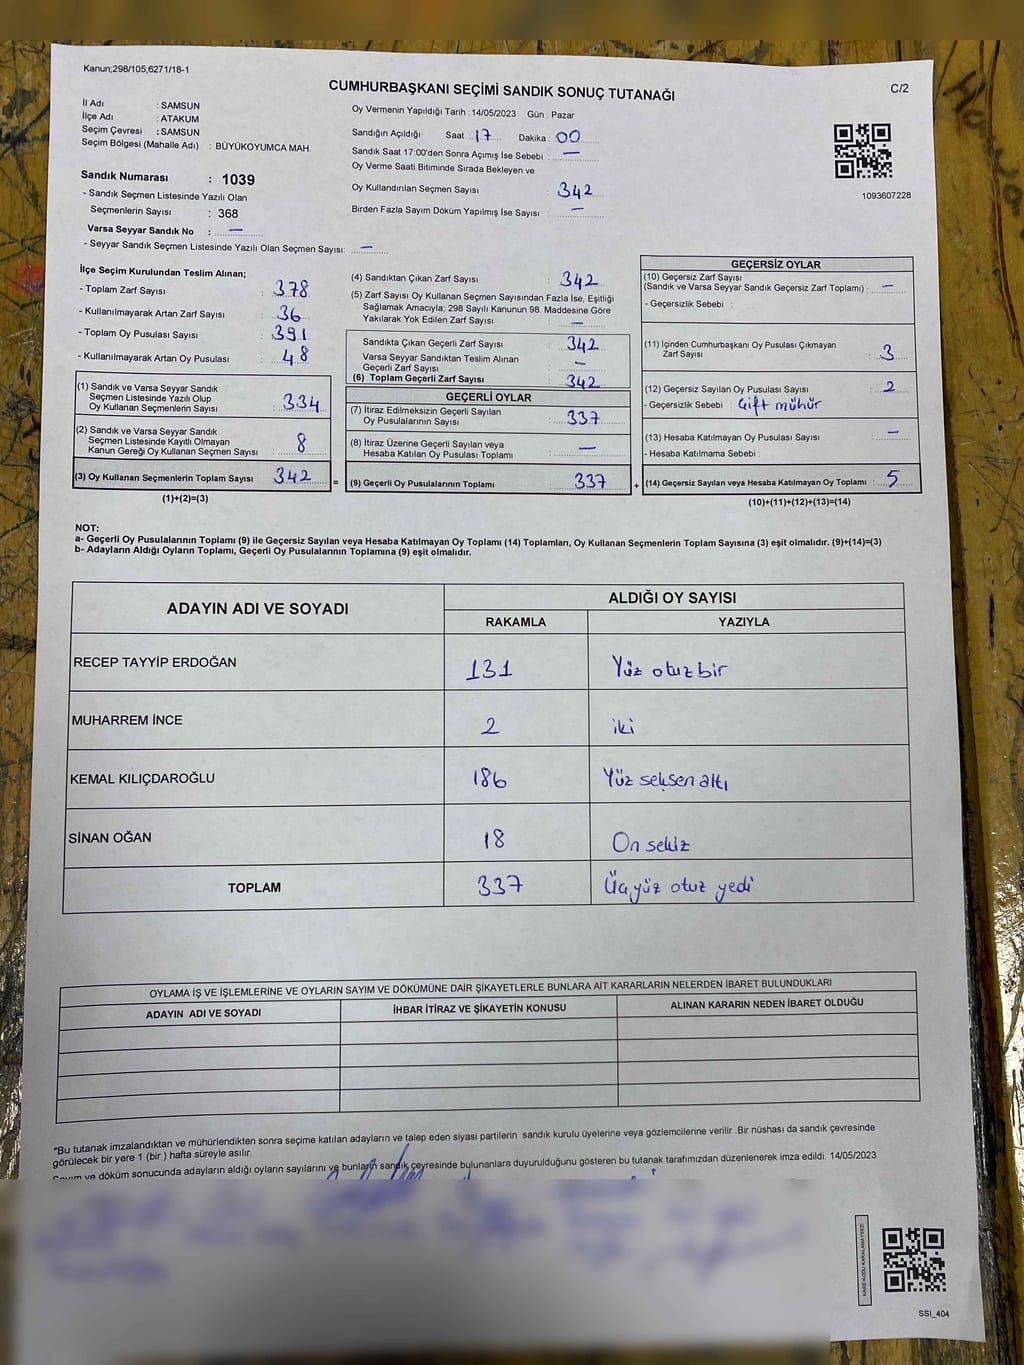 Kanun;298/105;6271/18-1
CUMHURBAŞKANI SEÇİMİ SANDIK SONUÇ TUTANAĞI
C/2
İl Adı : SAMSUN
İlçe Adı : ATAKUM
Seçim Çevresi : SAMSUN
Seçim Bölgesi (Mahalle Adı) : BÜYÜKOYUMCA MAH.
Sandık Numarası : 1039
- Sandık Seçmen Listesinde Yazılı Olan
Seçmenlerin Sayısı : 368
Varsa Seyyar Sandık No : —
- Seyyar Sandık Seçmen Listesinde Yazılı Olan Seçmen Sayısı: —
Oy Vermenin Yapıldığı Tarih : 14/05/2023 Gün : Pazar
Sandığın Açıldığı Saat : 17 Dakika : 00
Sandık Saat 17:00'den Sonra Açımış İse Sebebi : —
Oy Verme Saati Bitiminde Sırada Bekleyen ve
Oy Kullandırılan Seçmen Sayısı : 342
Birden Fazla Sayım Döküm Yapılmış İse Sayısı : —
1093607228
İlçe Seçim Kurulundan Teslim Alınan;
- Toplam Zarf Sayısı : 378
- Kullanılmayarak Artan Zarf Sayısı : 36
- Toplam Oy Pusulası Sayısı : 391
- Kullanılmayarak Artan Oy Pusulası : 48
(1) Sandık ve Varsa Seyyar Sandık
Seçmen Listesinde Yazılı Olup
Oy Kullanan Seçmenlerin Sayısı : 334
(2) Sandık ve Varsa Seyyar Sandık
Seçmen Listesinde Kayıtlı Olmayan
Kanun Gereği Oy Kullanan Seçmen Sayısı : 8
(3) Oy Kullanan Seçmenlerin Toplam Sayısı : 342 =
(1)+(2)=(3)
(4) Sandıktan Çıkan Zarf Sayısı : 342
(5) Zarf Sayısı Oy Kullanan Seçmen Sayısından Fazla İse, Eşitliği
Sağlamak Amacıyla; 298 Sayılı Kanunun 98. Maddesine Göre
Yakılarak Yok Edilen Zarf Sayısı : —
Sandıkta Çıkan Geçerli Zarf Sayısı : 342
Varsa Seyyar Sandıktan Teslim Alınan
Geçerli Zarf Sayısı : —
(6) Toplam Geçerli Zarf Sayısı : 342
GEÇERLİ OYLAR
(7) İtiraz Edilmeksizin Geçerli Sayılan
Oy Pusulalarının Sayısı : 337
(8) İtiraz Üzerine Geçerli Sayılan veya
Hesaba Katılan Oy Pusulası Toplamı : —
(9) Geçerli Oy Pusulalarının Toplamı : 337 +
GEÇERSİZ OYLAR
(10) Geçersiz Zarf Sayısı
(Sandık ve Varsa Seyyar Sandık Geçersiz Zarf Toplamı) : —
- Geçersizlik Sebebi :
(11) İçinden Cumhurbaşkanı Oy Pusulası Çıkmayan
Zarf Sayısı : 3
(12) Geçersiz Sayılan Oy Pusulası Sayısı : 2
- Geçersizlik Sebebi : Çift mühür
(13) Hesaba Katılmayan Oy Pusulası Sayısı : —
- Hesaba Katılmama Sebebi :
(14) Geçersiz Sayılan veya Hesaba Katılmayan Oy Toplamı : 5
(10)+(11)+(12)+(13)=(14)
NOT:
a- Geçerli Oy Pusulalarının Toplamı (9) ile Geçersiz Sayılan veya Hesaba Katılmayan Oy Toplamı (14) Toplamları, Oy Kullanan Seçmenlerin Toplam Sayısına (3) eşit olmalıdır. (9)+(14)=(3)
b- Adayların Aldığı Oyların Toplamı, Geçerli Oy Pusulalarının Toplamına (9) eşit olmalıdır.
ADAYIN ADI VE SOYADI ALDIĞI OY SAYISI
RAKAMLA YAZIYLA
RECEP TAYYİP ERDOĞAN 131 Yüz otuz bir
MUHARREM İNCE 2 iki
KEMAL KILIÇDAROĞLU 186 Yüz seksen altı
SİNAN OĞAN 18 On sekiz
TOPLAM 337 Üçyüz otuz yedi
OYLAMA İŞ VE İŞLEMLERİNE VE OYLARIN SAYIM VE DÖKÜMÜNE DAİR ŞİKAYETLERLE BUNLARA AİT KARARLARIN NELERDEN İBARET BULUNDUKLARI
ADAYIN ADI VE SOYADI İHBAR İTİRAZ VE ŞİKAYETİN KONUSU ALINAN KARARIN NEDEN İBARET OLDUĞU
*Bu tutanak imzalandıktan ve mühürlendikten sonra seçime katılan adayların ve talep eden siyasi partilerin sandık kurulu üyelerine veya gözlemcilerine verilir .Bir nüshası da sandık çevresinde
görülecek bir yere 1 (bir ) hafta süreyle asılır.
Sayım ve döküm sonucunda adayların aldığı oyların sayılarını ve bunların sandık çevresinde bulunanlara duyurulduğunu gösteren bu tutanak tarafımızdan düzenlenerek imza edildi. 14/05/2023
SSI_404